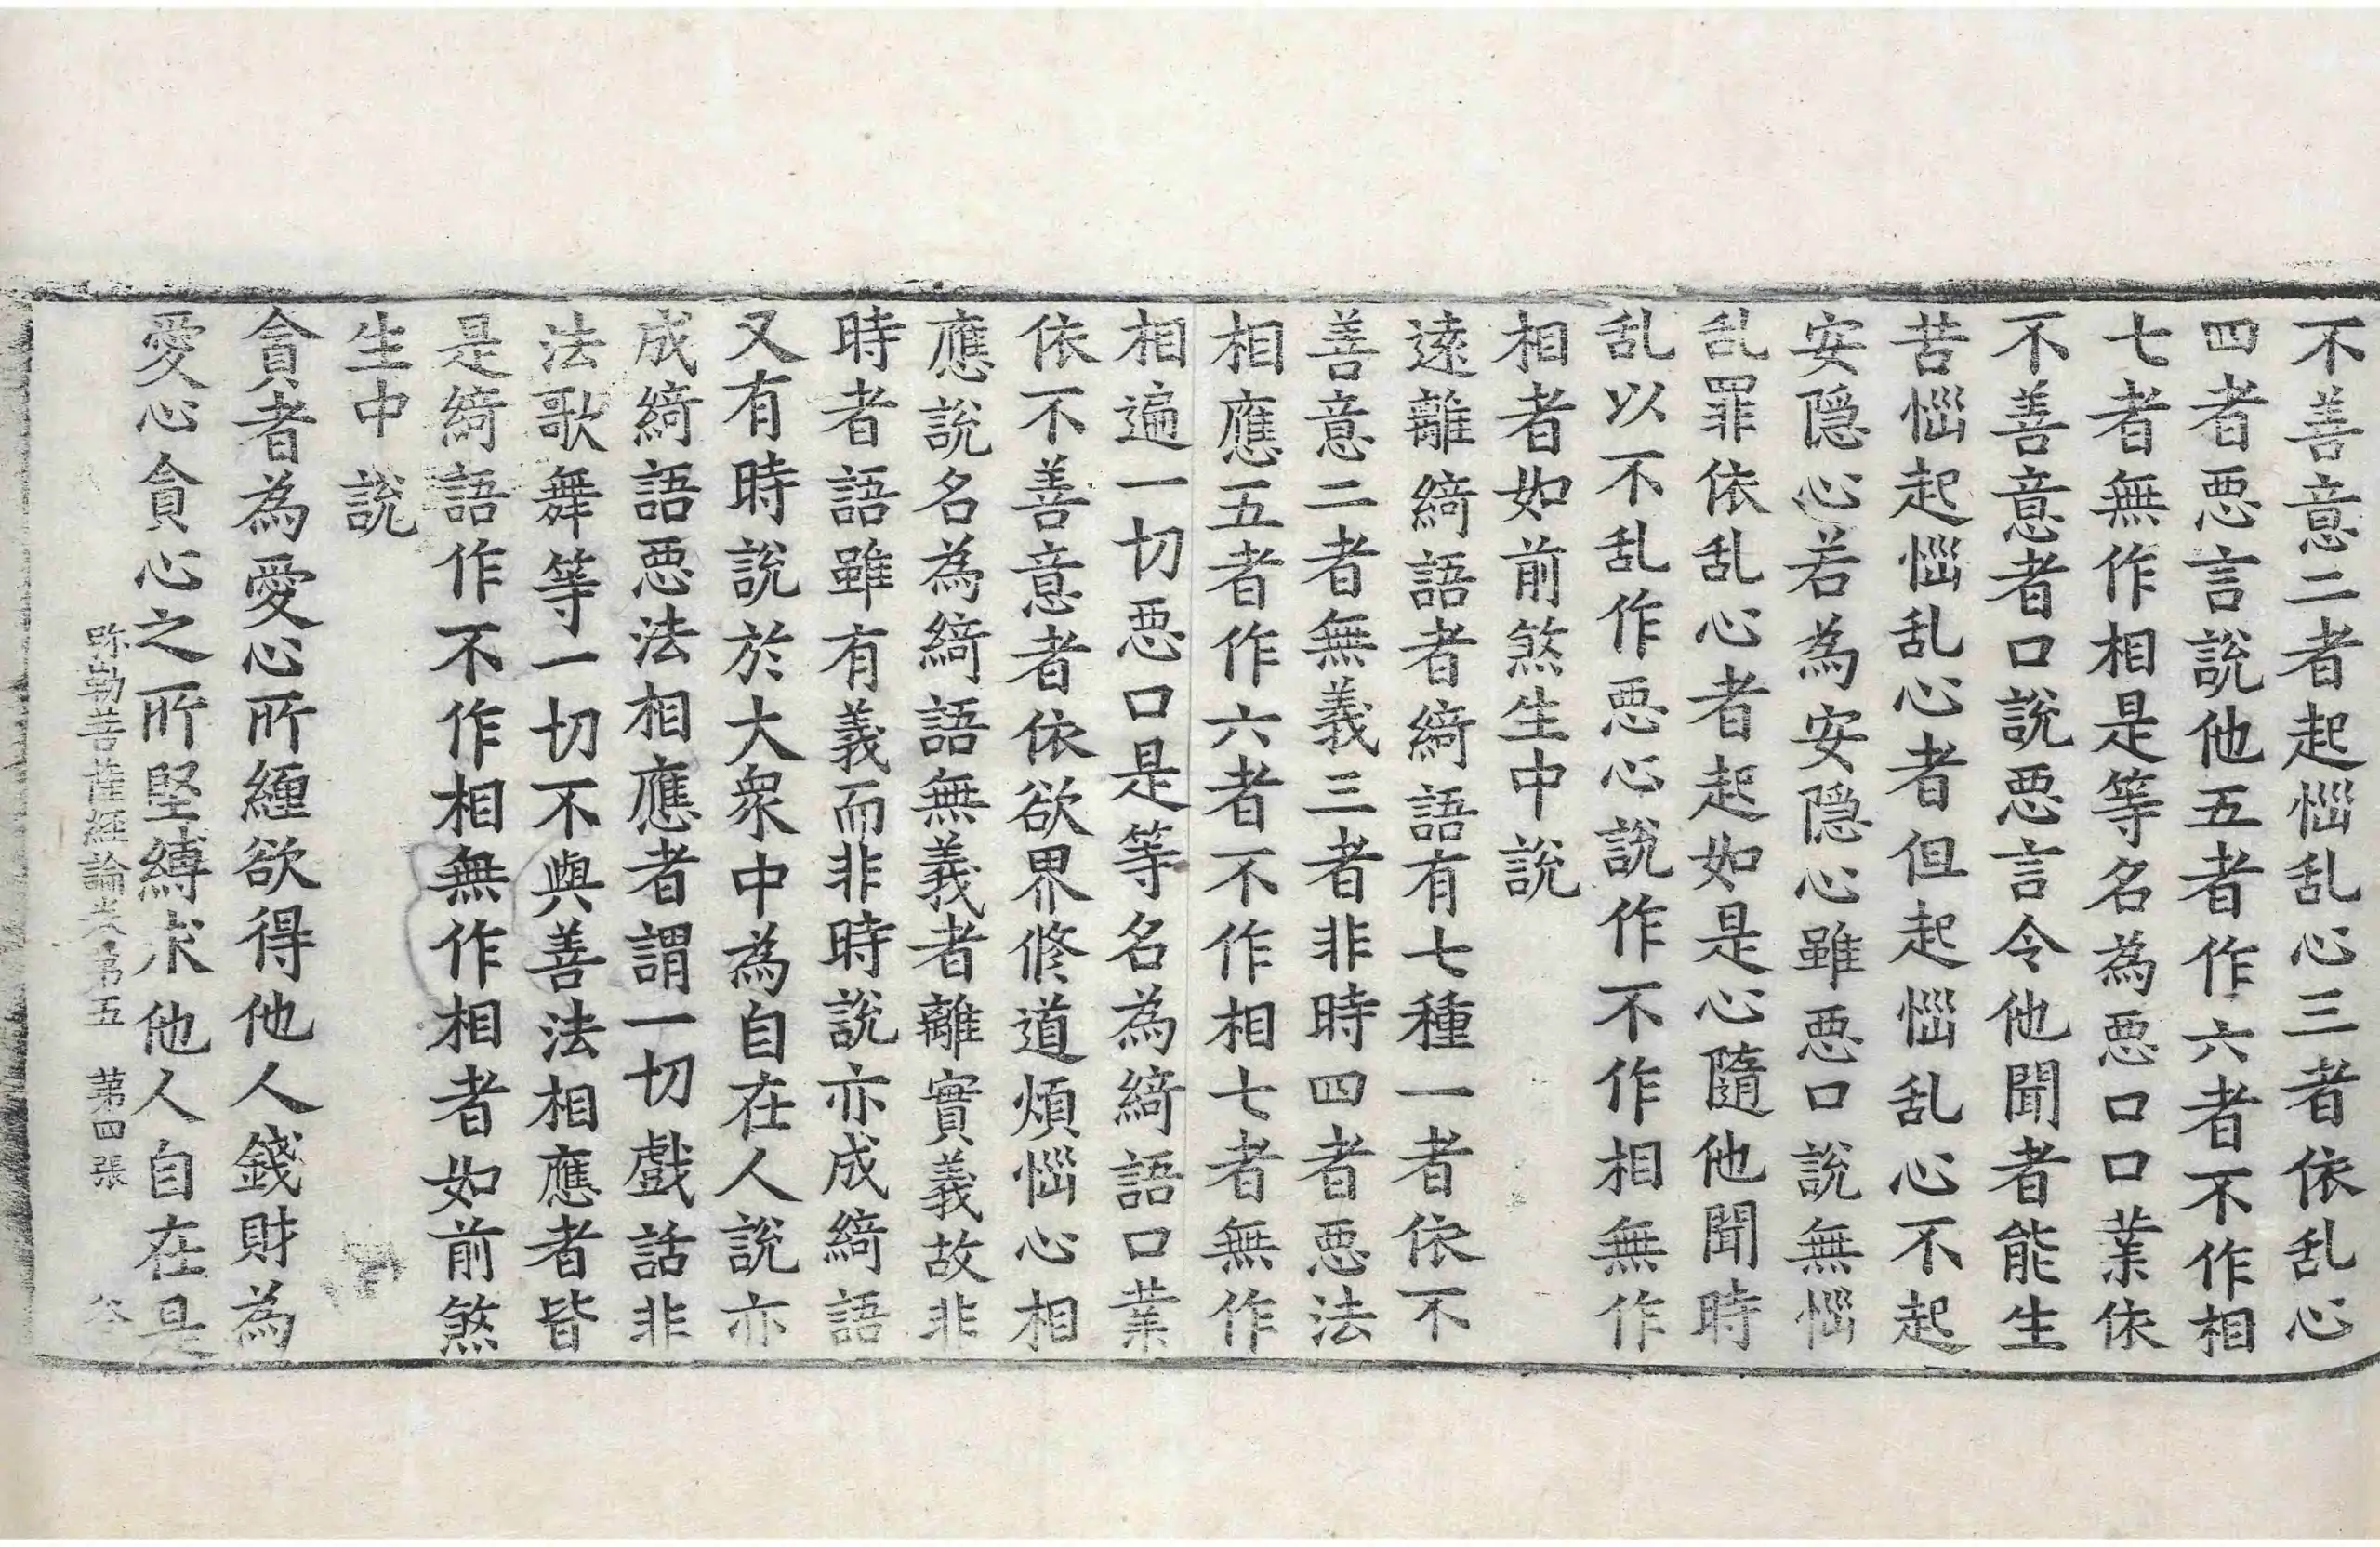 不善意二者起惱乱心三者依乱心
四者惡言說他五者作六者不作相
七者無作相是等名為惡口口業依
不善意者口說惡言令他聞者能生
苦惱起惱乱心者但起惱乱心不起
安隱心若為安安隱心雖惡口說無惱
乱罪依乱心者起如是心隨他聞時
乱以不乱作惡心說作不作相無作
相者如前煞生中說
遠離綺語者綺語有七種一者依不
善意二者無義三者非時四者惡法
相應五者作六者不作相七者無作
相遍一切惡口是等名為綺語口業
依不善意者依欲界修道煩惱心相
應說名為綺語無義者離實義故非
時者語雖有義而非時說亦成綺語
又有時說於大衆中為自在人說亦
成綺語惡法相應者謂一切戲話非
法歌舞等一切不與善法相應者皆
是綺語作不作相無作相者如前煞
生中說
貪者為愛心所纏欲得他人錢財為
愛心貪心之所堅縛求他人自在是
弥勒菩薩經論卷第五　第四張